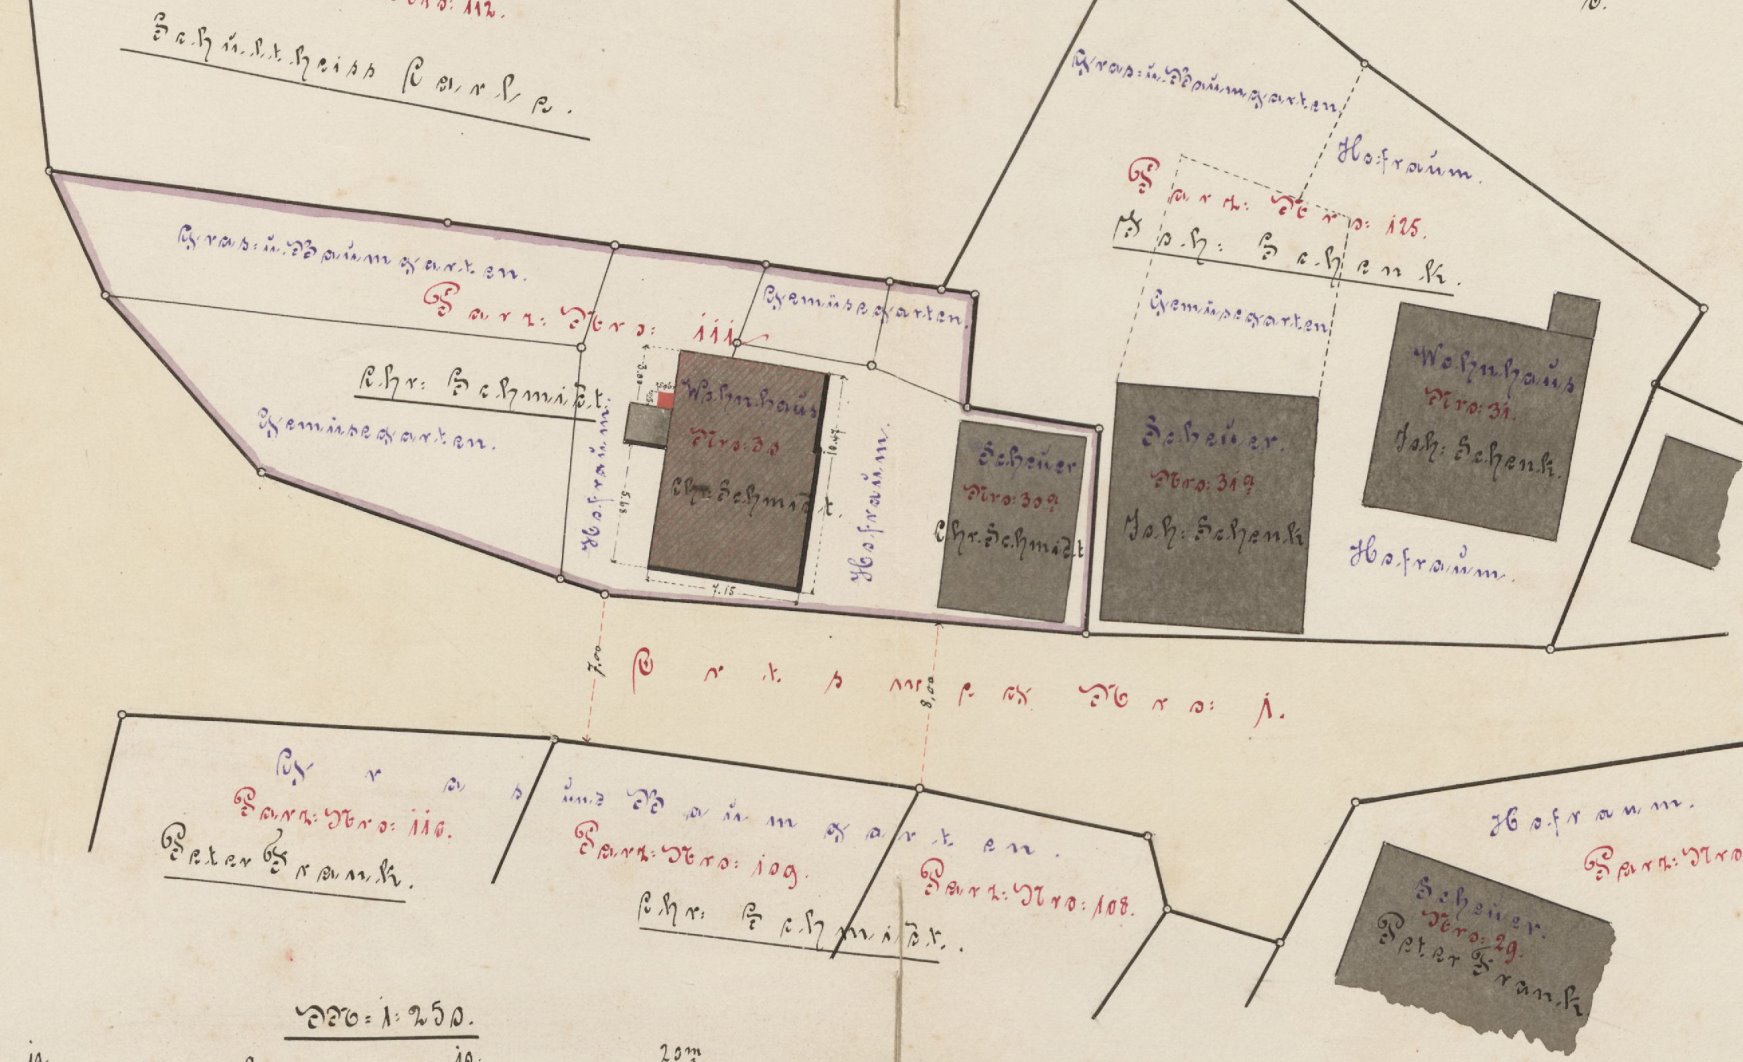 Nro: 112.
Schultheiss Carle.
Gras- u. Baumgarten.
Hofraum.
Parz: Nro: 125.
Joh: Schenk.
Gras- u. Baumgarten.
Parz: Nro: 111
Gemüsegarten.
Gemüsegarten
Chr: Schmidt.
Gemüsegarten.
Hofraum.
3.00
0.90
5.68
Wohnhaus
Nro: 30
Chr: Schmidt.
10.47
7.15
Hofraum.
Scheuer
Nro: 30a
Chr. Schmidt
Scheuer.
Nro: 31a
Joh: Schenk
Wohnhaus
Nro: 31.
Joh: Schenk.
Hofraum.
7,00
8,00
Ortsweg Nro: 1.
Gras und Baumgarten.
Parz: Nro: 110.
Peter Frank.
Parz: Nro: 109.
Chr: Schmidt.
Parz: Nro: 108.
Hofraum.
Parz: Nro
Scheuer.
Nro: 29.
Peter Frank
M = 1:250.
10.
0
10.
20m